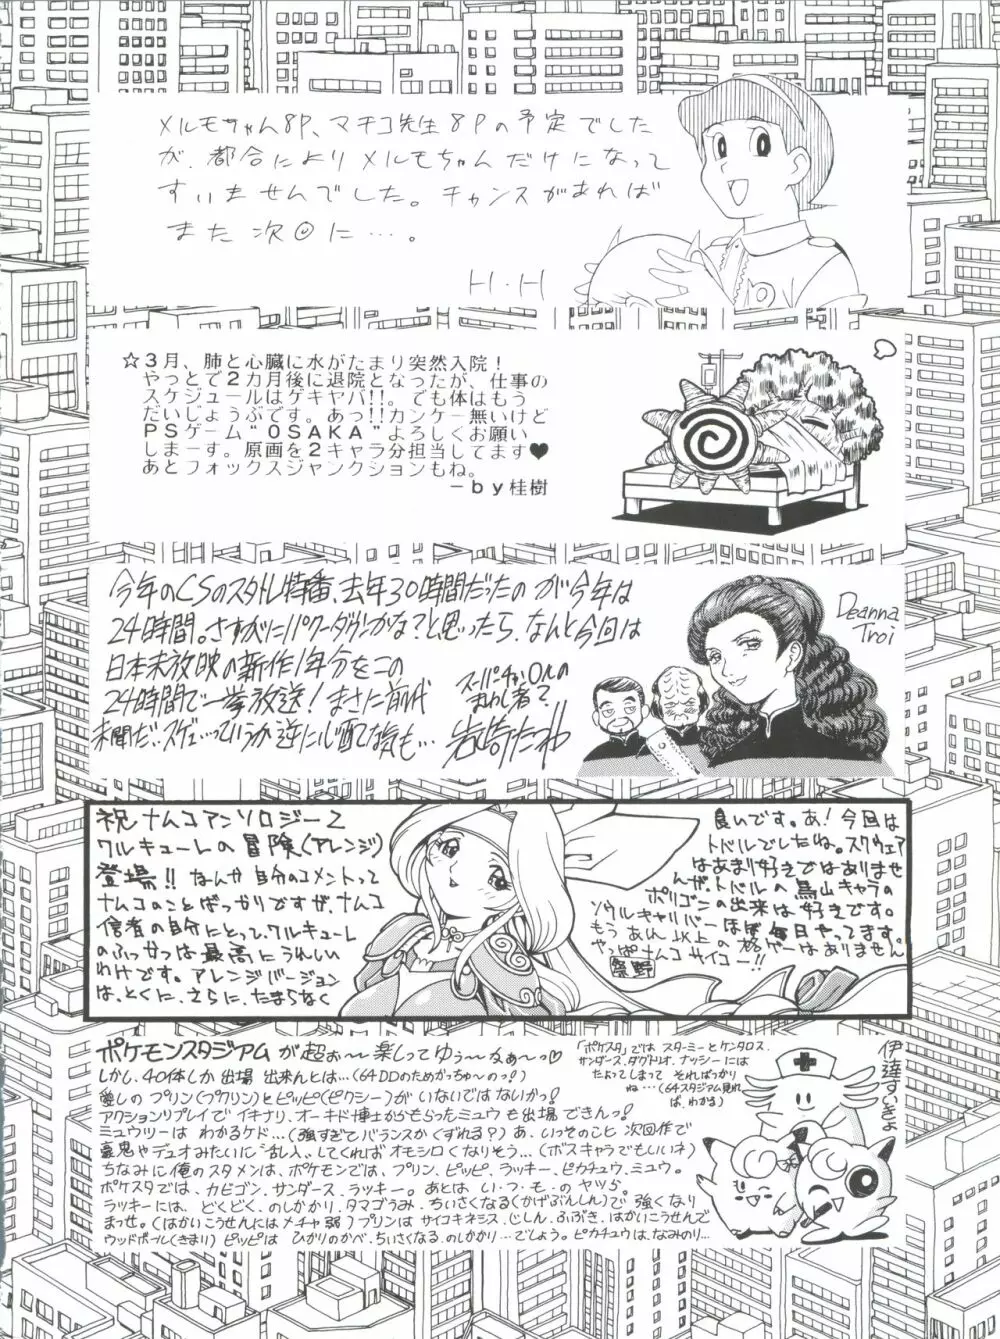 メルモちゃん8P、マチコ先生8Pの予定でした
が、都合によりメルモちゃんだけになって
すいませんでした。チャンスがあれば
また次回に…。
H・H
☆3月、肺と心臓に水がたまり突然入院!
やっとで2カ月後に退院となったが、仕事の
スケジュールはゲキヤバ!!。でも体はもう
だいじょうぶです。あっ!!カンケー無いけど
PSゲーム“OSAKA”よろしくお願い
しまーす。原画を2キャラ分担当してます♥
あとフォックスジャンクションもね。
－by桂樹
今年のCSのスタトレ特番、去年30時間だったのが今年は
24時間。さすがにパワーダウンかな?と思ったら、なんと今回は
日本未放映の新作1年分をこの
24時間で一挙放送!まさに前代
未聞だ、スゲェ…っていうか逆に心配な気も…
スーパーチャンネルの
まわし者?
岩崎たつや
Deanna
Troi
祝ナムコアンソロジー2
ワルキューレの冒険(アレンジ)
登場!!なんか自分のコメントって
ナムコのことばっかりですが、ナムコ
信者の自分にとって、ワルキューレ
のふっかつは最高にうれしい
わけです。アレンジバージョン
は、とくに、さらに、たまらなく
良いです。あ!今回は
トバルでしたね。スクウェア
はあまり好きではありませ
んが、トバルの鳥山キャラの
ポリゴンの出来は好きです。
ソウルキャリバーはほぼ毎日やってます。
もうあれ以上の格ゲーはありません
やっぱナムコサイコー!!
ポケモンスタジアムが超ぉ〜楽しってゆぅ〜なぁ〜っ♡
しかし、40体しか出場出来んとは…(64DDのためがっちゅ〜のっ!)
愛しのプリン(プクリン)とピッピ(ピクシー)がいないではないかっ!
アクションリプレイでイキナリ、オーキド博士からもらったミュウも出場できんっ!
ミュウツーはわかるケド…(強すぎてバランスがくずれる?)あ、いっそのこと次回作で
豪鬼やデュオみたいに乱入、してくればオモシロくなりそう…(ボスキャラでもしいネ)
ちなみに俺のスタメンは、ポケモンでは、プリン、ピッピ、ラッキー、ピカチュウ、ミュウ。
ポケスタでは、カビゴン、サンダース、ラッキー。あとはい・つ・も・のヤツら。
ラッキーには、どくどく、のしかかり、タマゴうみ、ちいさくなる(かげぶんしん)で強くなり
まっせ。(はかいこうせんにはメチャ弱)プリンはサイコキネシス、じしん、ふぶき、はかいこうせんで
ウッドボール(きまり)ピッピはひかりのかべ、ちいさくなる、のしかかり…でしょう。ピカチュウは、なみのり…
「ポケスタ」ではスターミーとケンタロス、
サンダース、ダグトリオ、ナッシーには
たよってしまってそればっかり
ね…(64スタジアム見れ
ば、わかる)
伊達すいきょ